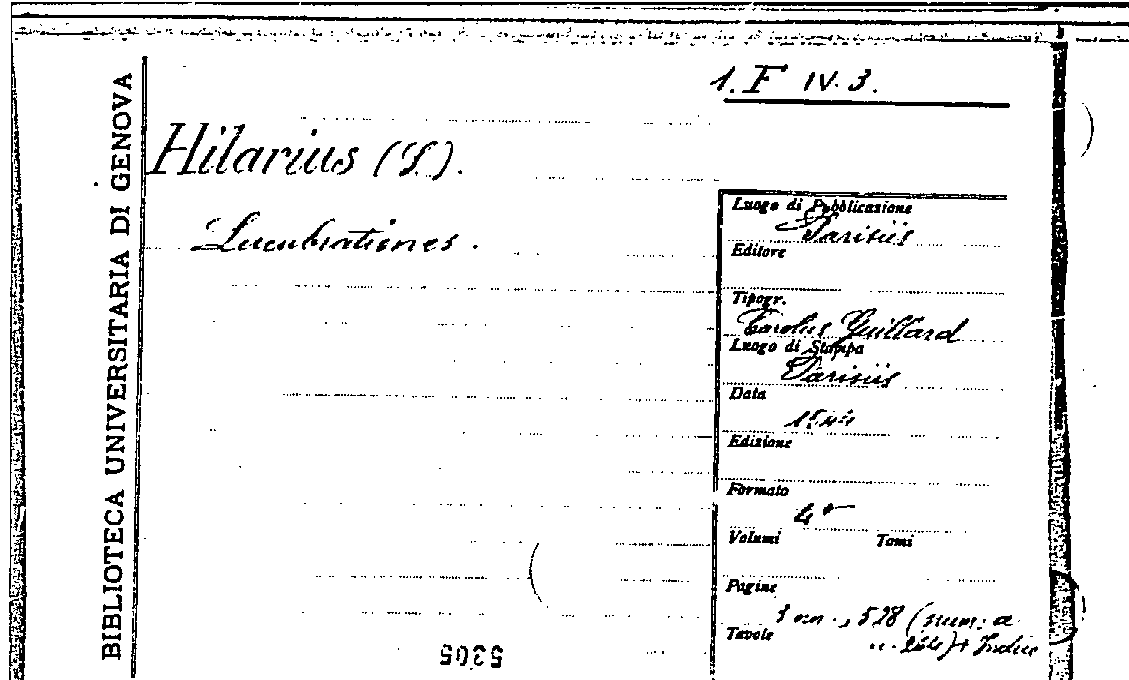 BIBLIOTECA UNIVERSITARIA DI GENOVA
1. F IV. 3.
Hilarius (S.).
Lucubrationes.
Luogo di Pubblicazione
Parisiis
Editore
Tipogr.
Carolus Guillard
Luogo di Stampa
Parisiis
Data
1544
Edizione
Formato
4°
Volumi Tomi
Pagine
nn., 528 (num. a
Tavole
264) + Indice
5305